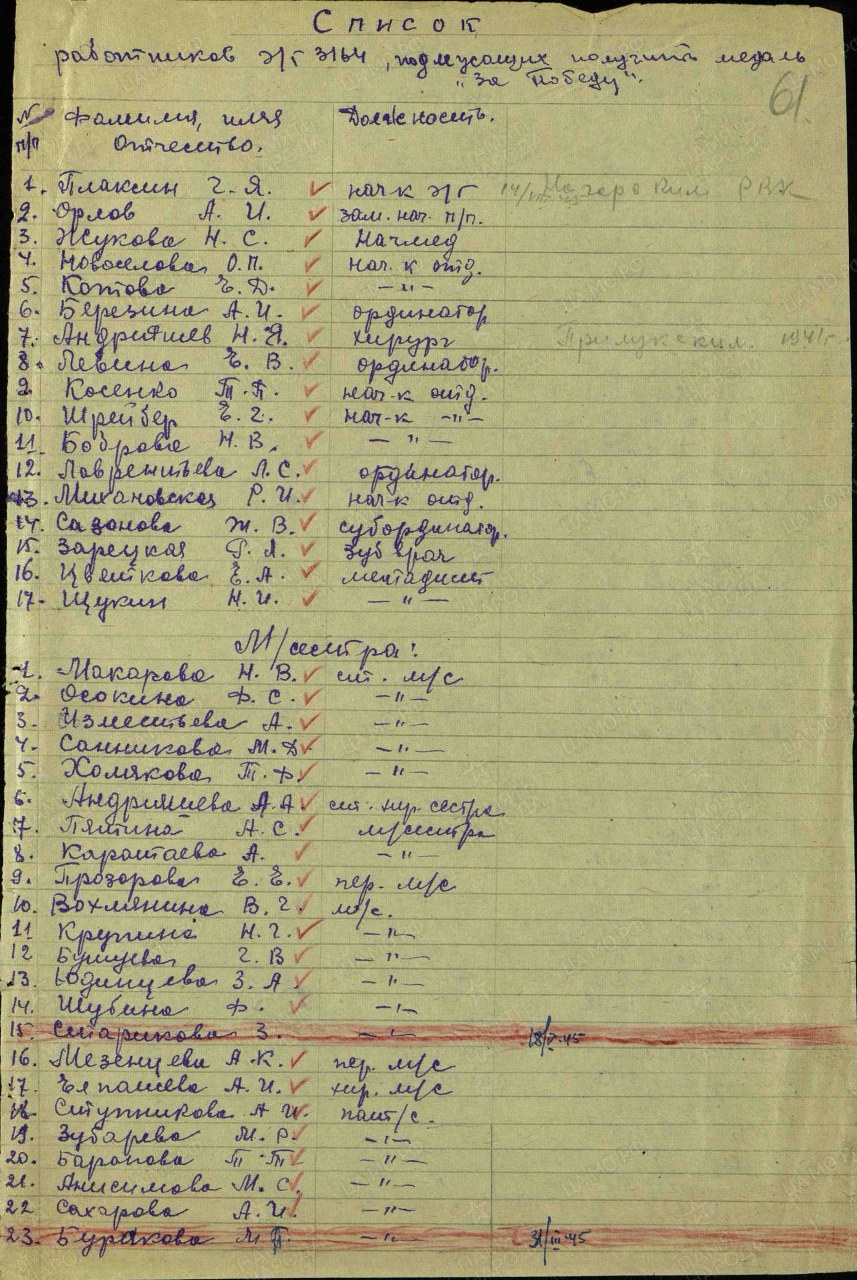 Список
работников э/г 3164, подлежащих получить медаль
"За Победу".
61.
№ п/п Фамилия, имя, отчество. Должность.
1. Плаксин Г. Я. нач-к э/г
2. Орлов А. И. зам. нач. п/п.
3. Жукова Н. С. Начмед
4. Новоселова О.П. нач-к отд.
5. Котова Е. Д. — " —
6. Березина А. И. ординатор
7. Андрияшев Н. Я. хирург Прилукским. 1941г.
8. Левина Е. В. ординатор.
9. Косенко Т. П. нач-к отд.
10. Шрейбер Е. Г. нач-к — " —
11. Боброва Н. В. — " —
12. Лаврентьева Л. С. ординатор.
13. Михановская Р. И. нач-к отд.
14. Сазонова Ж. В. субординатор.
15. Зарецкая Р. Л. Зуб врач
16. Цветкова Е. А. методист
17. Щукин Н. И. — " —
М/сестра:
1. Макарова Н. В. ст. м/с
2. Осокина Ф. С. — " —
3. Изместьева А. — " —
4. Санникова М. Д. — " —
5. Хомякова Т. Ф. — " —
6. Андрияшева А. А. ст. хир. сестра
7. Пятина А. С. м/сестра
8. Каратаева А. — " —
9. Прозорова Е. Е. пер. м/с
10. Вохмянина В. Г. м/с.
11 Крупина Н. Г. — " —
12 Бушуева Г. В — " —
13. Юдинцева З. А — " —
14. Шубина Ф. — " —
15. Старикова З. — " — 18/V-45
16. Мезенцева А. К. пер. м/с
17. Елпашева А. И. хир. м/с
18. Ступникова А. И. пал/с.
19. Зубарева М. Р. — " —
20. Баранова Т. Т. — " —
21. Анисимова М. С. — " —
22 Сахарова А. И. — " —
23. Бурякова М. П. — " — 31/III-45